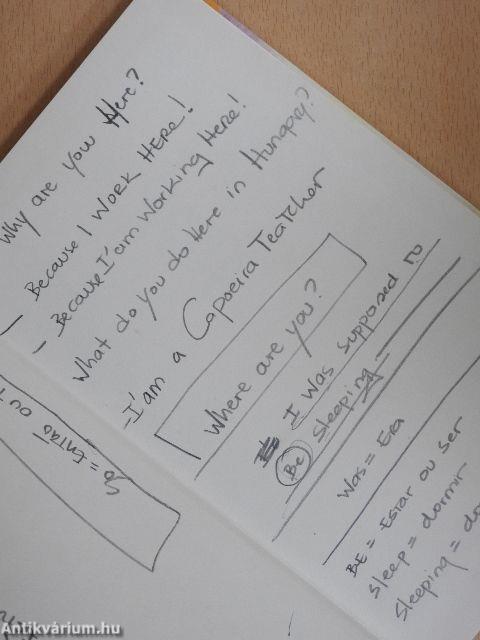 Why are you Here?
- Because I Work Here!
- Because I'am Working Here!
What do you do Here in Hungary?
- I'am a Capoeira Teatcher
Where are you?
I was supposed to
Be sleeping
Was = Era
BE = Estar ou ser
Sleep = dormir
Sleeping =
So = Então ou
Antikvárium.hu